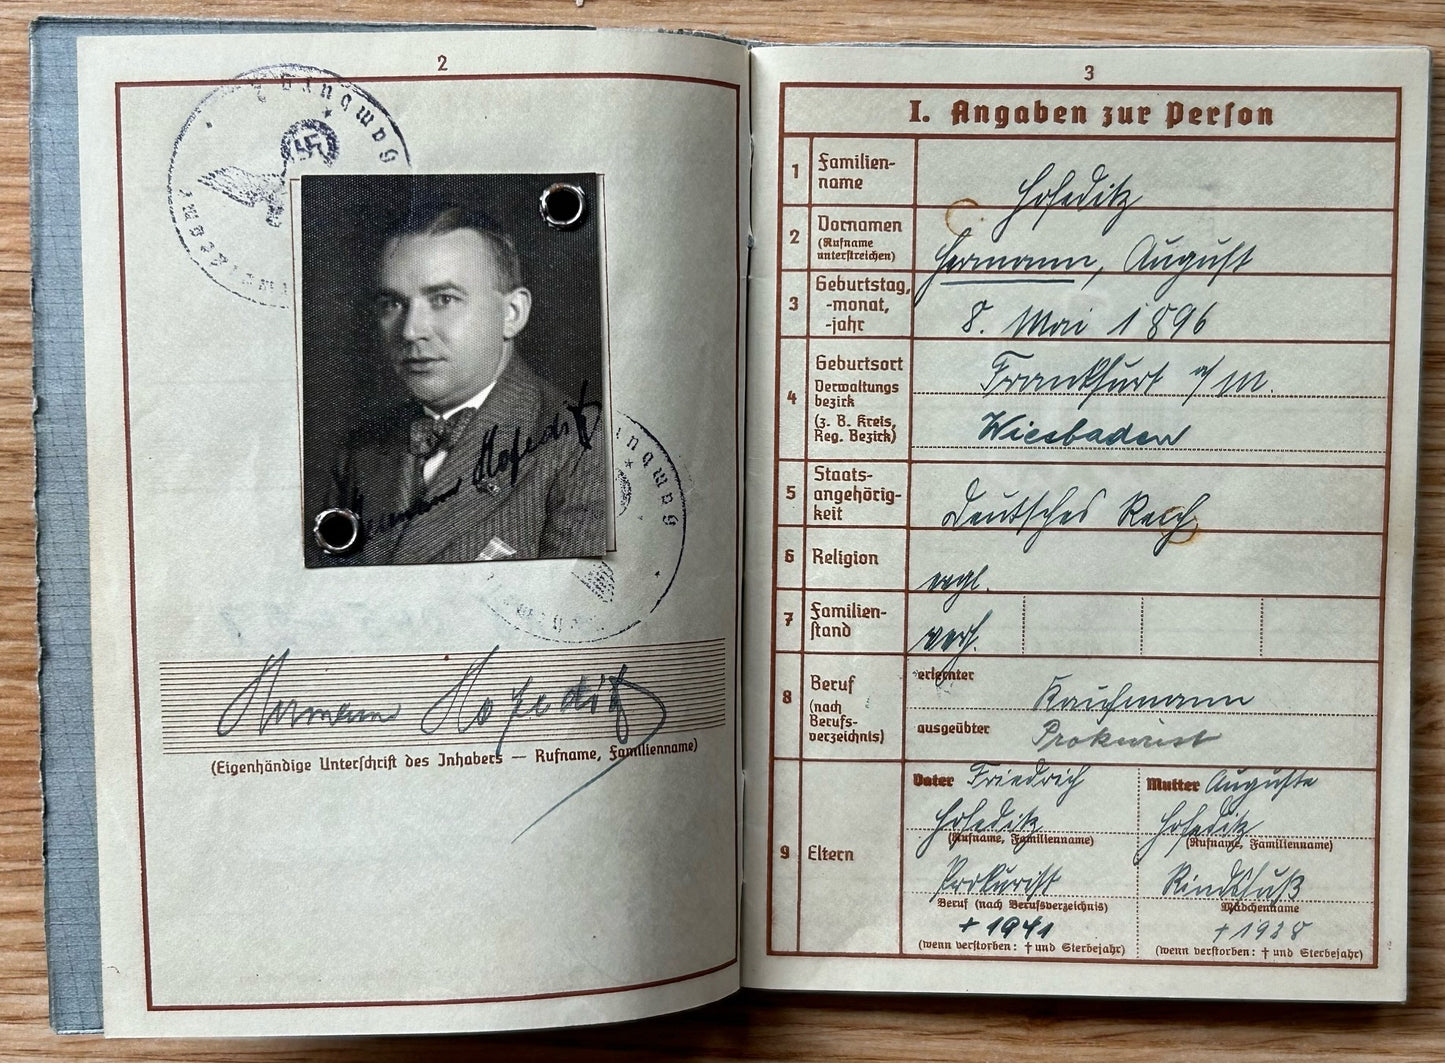 2
Hermann Hofeditz
Hermann Hofeditz
(Eigenhändige Unterſchrift des Inhabers — Rufname, Familienname)
3
I. Angaben zur Perſon
1 Familien-
name
Hofeditz
2 Vornamen
(Rufname
unterſtreichen)
Hermann, August
3 Geburtstag,
-monat,
-jahr
8. Mai 1896
4 Geburtsort
Verwaltungs
bezirk
(z. B. Kreis,
Reg. Bezirk)
Frankfurt a/M.
Wiesbaden
5 Staats-
angehörig-
keit
Deutsches Reich
6 Religion
evgl.
7 Familien-
ſtand
verh.
8 Beruf
(nach
Berufs-
verzeichnis)
erlernter
Kaufmann
ausgeübter
Prokurist
9 Eltern
Vater Friedrich
Hofeditz
(Rufname, Familienname)
Prokurist
Beruf (nach Berufsverzeichnis)
† 1941
(wenn verſtorben: † und Sterbejahr)
Mutter Auguste
Hofeditz
(Rufname, Familienname)
Rindsfuß
Mädchenname
† 1928
(wenn verſtorben: † und Sterbejahr)